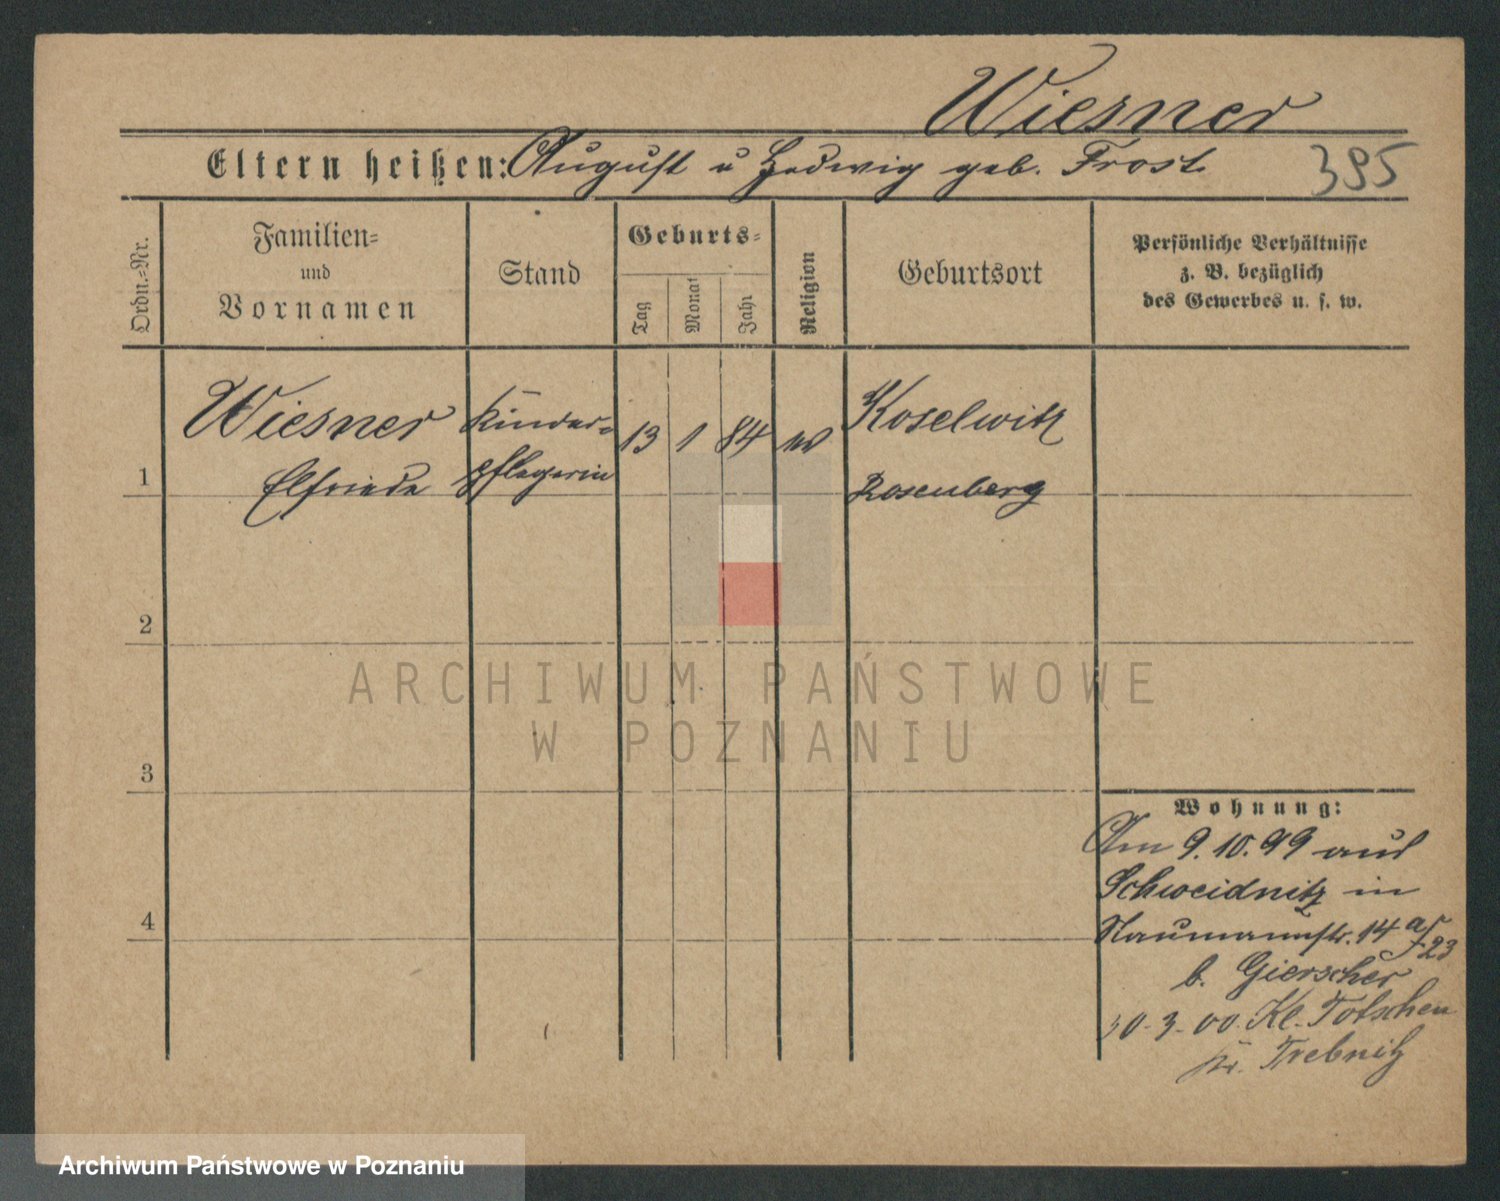 Wiesner
Eltern heißen: August u Hedwig geb. Frost. 395
Ordn.=Nr.
Familien=
und
Vornamen
Stand
Geburts=
Tag
Monat
Jahr
Religion
Geburtsort
Persönliche Verhältnisse
z. B. bezüglich
des Gewerbes u. s. w.
Wiesner Kinder= 13 1 84 Koselwitz
1 Elfriede pflegerin Rosenberg
2
3
4
Wohnung:
Am 9.10.99 aus
Schweidnitz in
Naumannstr. 14
b. Gierscher
30-3-00. Kl. Totschen
Kr. Trebnitz
ARCHIWUM PAŃSTWOWE
W POZNANIU
Archiwum Państwowe w Poznaniu